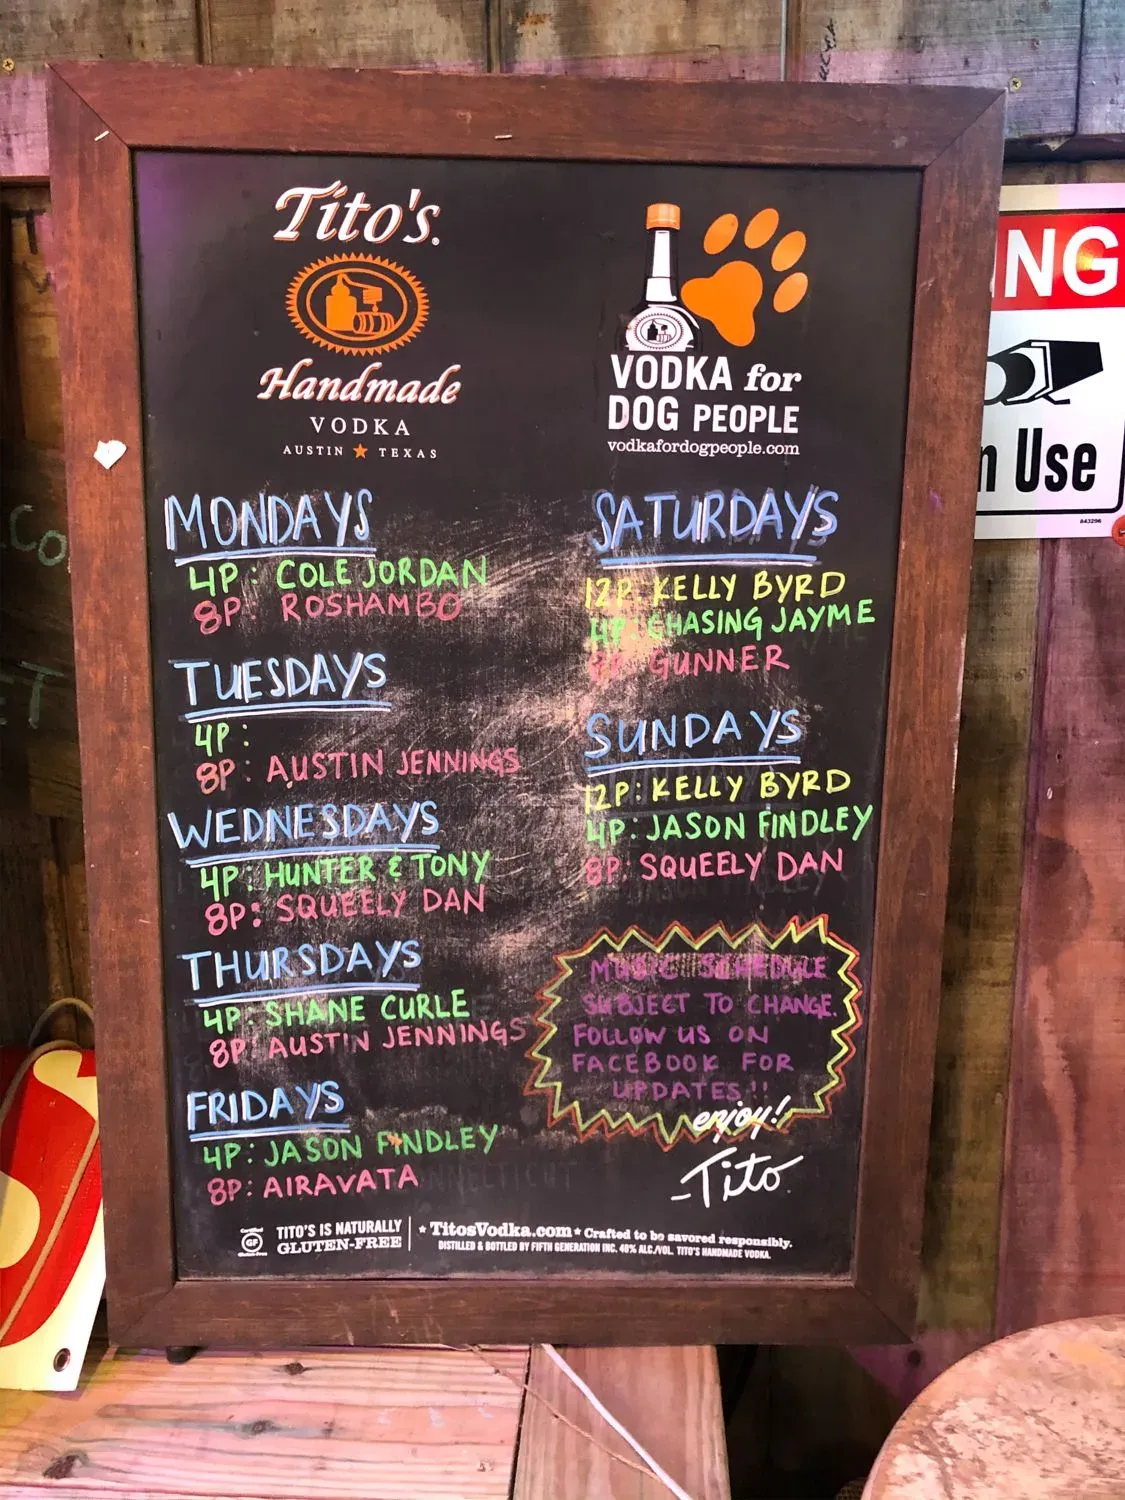 Tito's.
Handmade
VODKA
AUSTIN ★ TEXAS
VODKA for
DOG PEOPLE
vodkafordogpeople.com
MONDAYS
4P: COLE JORDAN
8P: ROSHAMBO
TUESDAYS
4P:
8P: AUSTIN JENNINGS
WEDNESDAYS
4P: HUNTER & TONY
8P: SQUEELY DAN
THURSDAYS
4P: SHANE CURLE
8P: AUSTIN JENNINGS
FRIDAYS
4P: JASON FINDLEY
8P: AIRAVATA
SATURDAYS
12P: KELLY BYRD
4P: CHASING JAYME
8P: GUNNER
SUNDAYS
12P: KELLY BYRD
4P: JASON FINDLEY
8P: SQUEELY DAN
MUSIC SCHEDULE
SUBJECT TO CHANGE.
FOLLOW US ON
FACEBOOK FOR
UPDATES!!
enjoy!
-Tito
GF
TITO'S IS NATURALLY
GLUTEN-FREE
★ TitosVodka.com ★ Crafted to be savored responsibly.
DISTILLED & BOTTLED BY FIFTH GENERATION INC. 40% ALC./VOL. TITO'S HANDMADE VODKA.
ING
n Use
843296